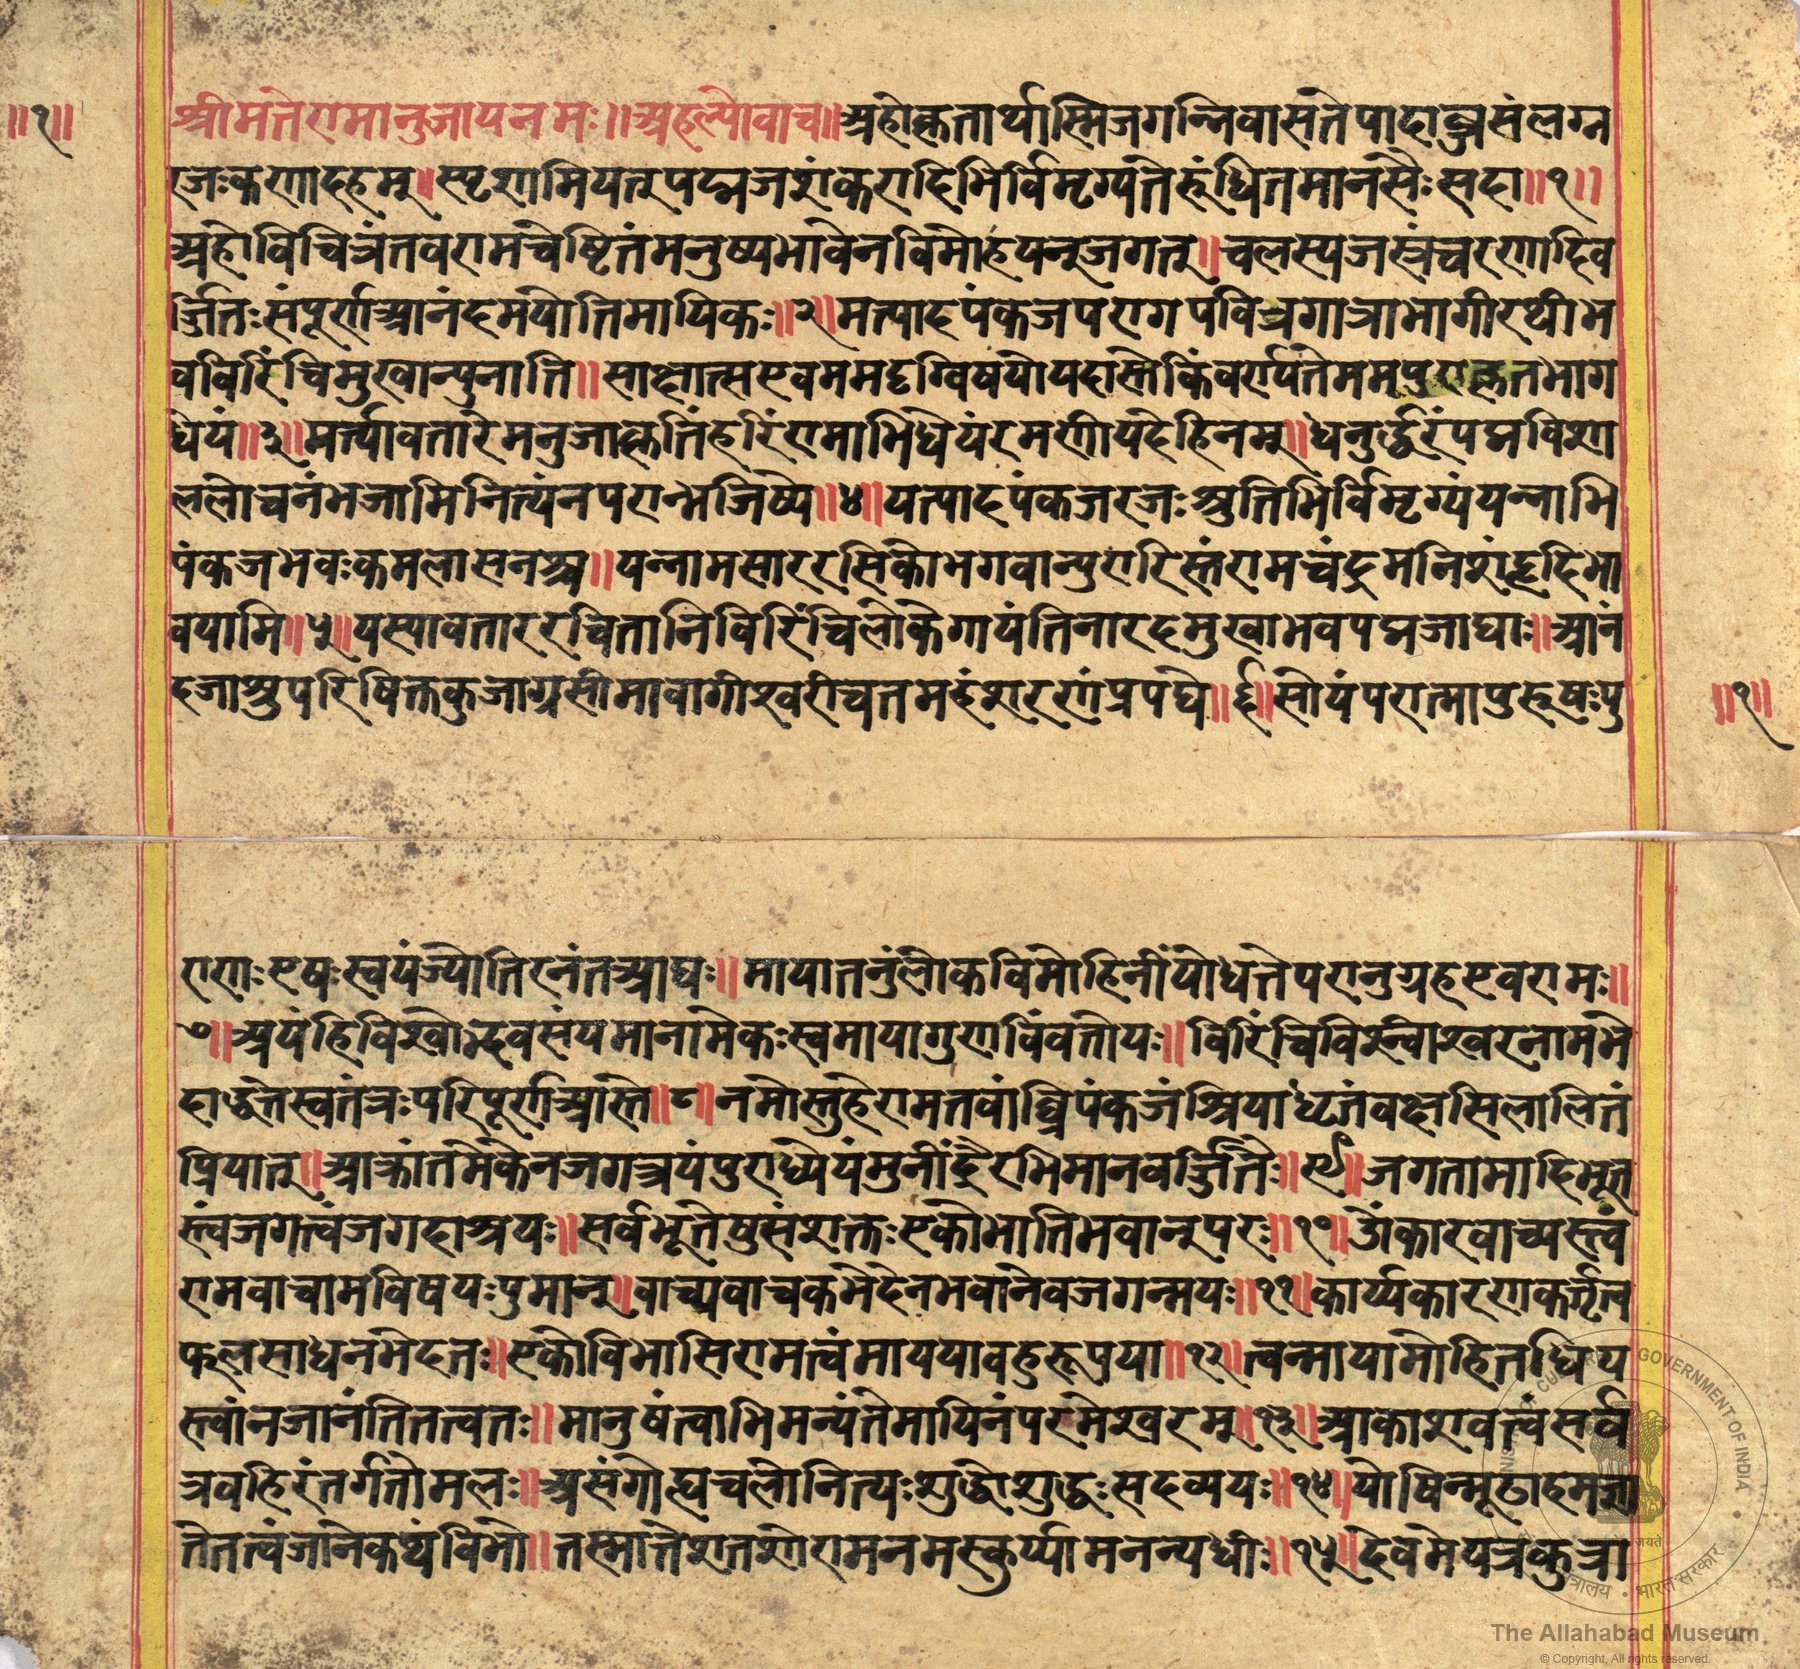 ॥१॥
श्रीमतेरामानुजायनमः॥अहल्योवाच॥अहोकृतार्थास्मिजगन्निवासतेपादाब्जसंलग्न
रजःकणादहम्॥स्पृशामियत्पद्मजशंकरादिभिर्विमृग्यतेरूंधितमानसैःसदा॥१॥
अहोविचित्रंतवरामचेष्टितंमनुष्यभावेनविमोहयन्जगत्॥चलस्यजस्रंचरणादिव
र्ज्जितःसंपूर्णआनंदमयोतिमायिकः॥२॥मत्पादपंकजपरागपवित्रगात्राभागीरथीभ
वविरिंचिमुखान्पुनाति॥साक्षात्सएवममदृग्विषयोयदास्तेकिंवर्ण्यतेममपुराकृतभाग
धेयं॥३॥मर्त्यावतारेमनुजाकृतिंहरिंरामाभिधेयंरमणीयदेहिनम्॥धनुर्द्धरंपद्मविशा
ललोचनंभजामिनित्यंनपरान्भजिष्ये॥४॥यत्पादपंकजरजःश्रुतिभिर्विमृग्यंयन्नाभि
पंकजभवःकमलासनश्च॥यन्नामसाररसिकोभगवान्पुरारिस्तंरामचंद्रमनिशंहृदिभा
वयामि॥५॥यस्यावताररचितानिविरिंचिलोकेगायंतिनारदमुखाभवपद्मजाद्याः॥आनं
दजाश्रुपरिषिक्तकुजाग्रसीमावागीश्वरीचतमहंशरणंप्रपद्ये॥६॥सोयंपरात्मापुरूषःपु
॥१॥
राणःएषःस्वयंज्योतिरनंतआद्यः॥मायातनुंलोकविमोहिनींयोधत्तेपरानुग्रहएवरामः॥
७॥अयंहिविश्वोद्भवसंयमानामेकःस्वमायागुणविंवतोयः॥विरिंचिविश्न्वीश्वरनामभे
दाद्धत्तेस्वतंत्रःपरिपूर्णआस्ते॥८॥नमोस्तुहेरामतवांघ्रिपंकजंश्रियाधृतंवक्षसिलालितं
प्रियात्॥आक्रांतमेकेनजगत्त्रयंपुराध्येयंमुनींद्रैरभिमानवर्ज्जितैः॥९॥जगतामादिभूत
स्त्वंजगत्त्वंजगदाश्रयः॥सर्वभूतेषुसंशक्तःएकोभातिभवान्परः॥१०॥ॐकारवाच्यस्त्वं
रामवाचामविषयःपुमान्॥वाच्यवाचकभेदेनभवानेवजगन्मयः॥११॥कार्य्यकारणकर्तृत्व
फलसाधनभेदतः॥एकोविभासिरामत्वंमाययावहुरूपया॥१२॥त्वन्मायामोहितधिय
स्त्वांनजानंतितत्त्वतः॥मानुषंत्वाभिमन्यंतेमायिनंपरमेश्वरम्॥१३॥आकाशवत्त्वंसर्व
त्रवहिरंतर्गतोमलः॥असंगोह्यचलोनित्यःशुद्धोशुद्धःसदव्ययः॥१४॥योषिन्मूढाहमज्ञा
तेतत्त्वंजानेकथंविभो॥तस्मात्तेशतशोरामनमस्कुर्य्यामनन्यधीः॥१५॥देवमेयत्रकुत्रा
The Allahabad Museum
© Copyright, All rights reserved.